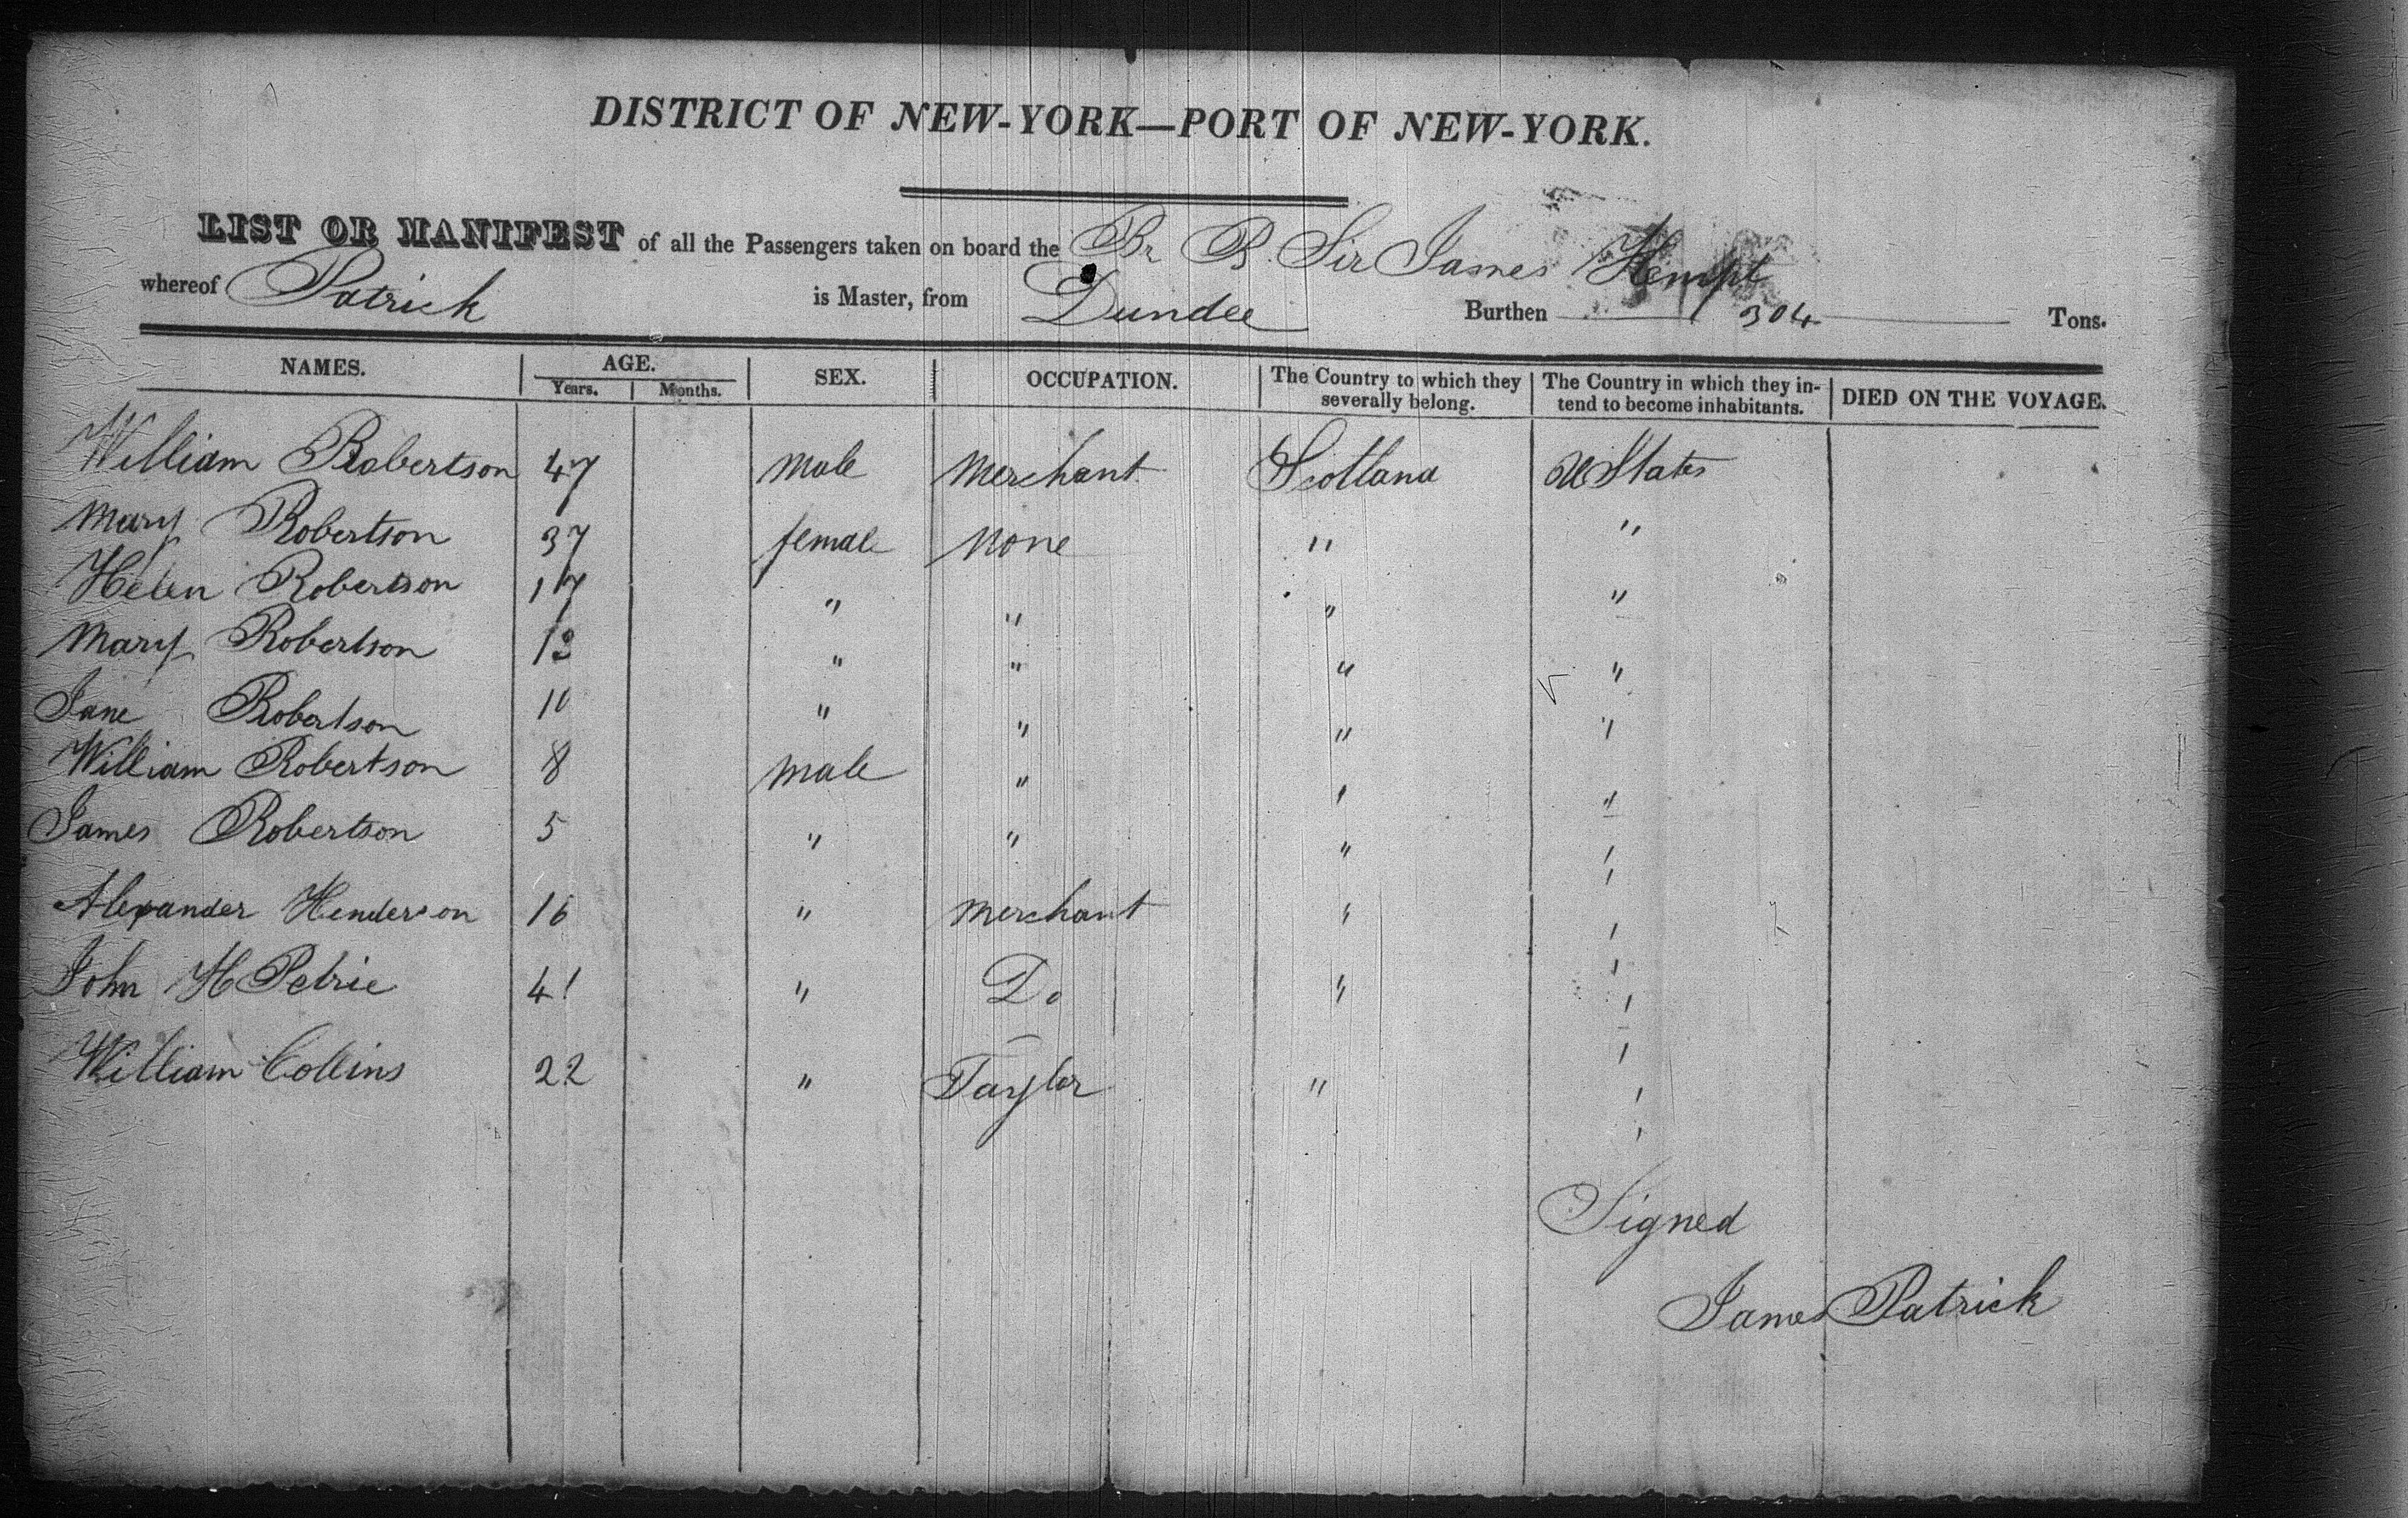 DISTRICT OF NEW-YORK—PORT OF NEW-YORK.
LIST OR MANIFEST of all the Passengers taken on board the Br B. Sir James Kempt
whereof Patrick is Master, from Dundee Burthen 304 Tons.
NAMES. AGE. SEX. OCCUPATION. The Country to which they severally belong. The Country in which they intend to become inhabitants. DIED ON THE VOYAGE.
Years. Months.
William Robertson 47 male Merchant Scotland U States
Mary Robertson 37 female None " "
Helen Robertson 17 " " " "
Mary Robertson 13 " " " "
Jane Robertson 10 " " " "
William Robertson 8 male " " "
James Robertson 5 " " " "
Alexander Henderson 16 " merchant " "
John H Petrie 41 " Do " "
William Collins 22 " Taylor " "
Signed
James Patrick